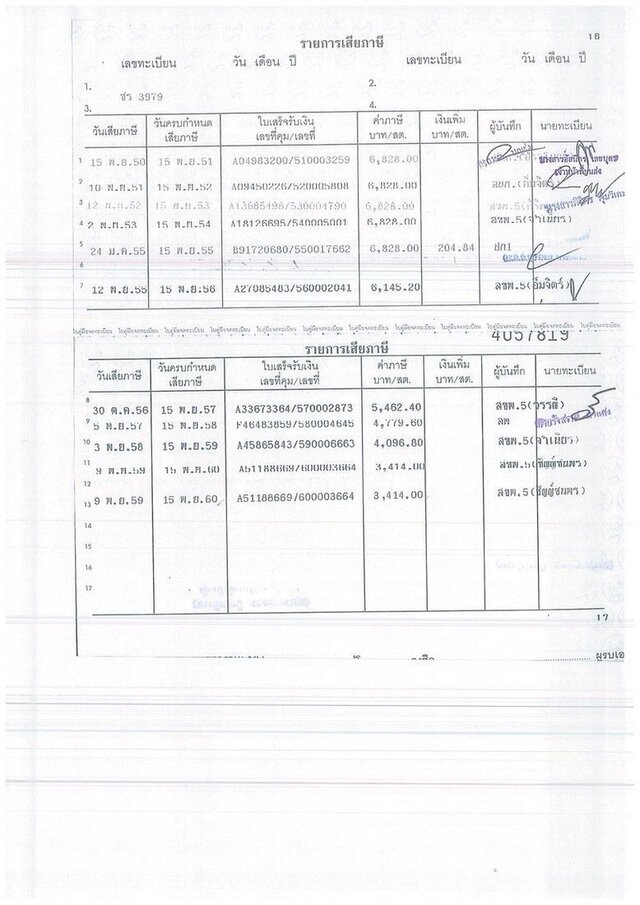 16
รายการเสียภาษี
เลขทะเบียน วัน เดือน ปี เลขทะเบียน วัน เดือน ปี
1. 2.
ชร 3979
3. 4.
วันเสียภาษี วันครบกำหนดเสียภาษี ใบเสร็จรับเงิน เลขที่คุม/เลขที่ ค่าภาษี บาท/สต. เงินเพิ่ม บาท/สต. ผู้บันทึก นายทะเบียน
1 15 พ.ย.50 15 พ.ย.51 A04983200/510003259 6,828.00
2 10 พ.ย.51 15 พ.ย.52 A09450226/520005808 6,828.00
3 12 พ.ย.52 15 พ.ย.53 A13685498/530004790 6,828.00
4 2 พ.ย.53 15 พ.ย.54 A18126695/540005001 6,828.00 สขพ.5(จำเนียร)
5 24 ม.ค.55 15 พ.ย.55 B91720680/550017662 6,828.00 204.84 ชก1
6
7 12 พ.ย.55 15 พ.ย.56 A27085483/560002041 6,145.20 สขพ.5(อิ่มจิตร์)
4057819
รายการเสียภาษี
วันเสียภาษี วันครบกำหนดเสียภาษี ใบเสร็จรับเงิน เลขที่คุม/เลขที่ ค่าภาษี บาท/สต. เงินเพิ่ม บาท/สต. ผู้บันทึก นายทะเบียน
8 30 ต.ค.56 15 พ.ย.57 A33673364/570002873 5,462.40 สขพ.5(วรรณี)
9 5 พ.ย.57 15 พ.ย.58 F46483859/580004645 4,779.60 ลพ
10 3 พ.ย.58 15 พ.ย.59 A45865843/590006663 4,096.80 สขพ.5(จำเนียร)
11 9 พ.ย.59 15 พ.ย.60 A51188669/600003664 3,414.00 สขพ.5(ธัญญ์ชนพร)
12
13 9 พ.ย.59 15 พ.ย.60 A51188669/600003664 3,414.00 สขพ.5(ธัญญ์ชนพร)
14
15
16
17
17